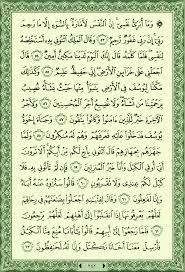 وَمَآ أُبَرِّئُ نَفْسِيٓ إِنَّ ٱلنَّفْسَ لَأَمَّارَةُۢ بِٱلسُّوٓءِ إِلَّا مَا رَحِمَ
رَبِّيٓ إِنَّ رَبِّي غَفُورٌ رَّحِيمٌ ٥٣ وَقَالَ ٱلْمَلِكُ ٱئْتُونِي بِهِۦٓ أَسْتَخْلِصْهُ
لِنَفْسِي فَلَمَّا كَلَّمَهُۥ قَالَ إِنَّكَ ٱلْيَوْمَ لَدَيْنَا مَكِينٌ أَمِينٌ ٥٤ قَالَ
ٱجْعَلْنِي عَلَىٰ خَزَآئِنِ ٱلْأَرْضِ إِنِّي حَفِيظٌ عَلِيمٌ ٥٥ وَكَذَٰلِكَ
مَكَّنَّا لِيُوسُفَ فِي ٱلْأَرْضِ يَتَبَوَّأُ مِنْهَا حَيْثُ يَشَآءُ نُصِيبُ
بِرَحْمَتِنَا مَن نَّشَآءُ وَلَا نُضِيعُ أَجْرَ ٱلْمُحْسِنِينَ ٥٦ وَلَأَجْرُ
ٱلْءَاخِرَةِ خَيْرٌ لِّلَّذِينَ ءَامَنُوا۟ وَكَانُوا۟ يَتَّقُونَ ٥٧ وَجَآءَ إِخْوَةُ
يُوسُفَ فَدَخَلُوا۟ عَلَيْهِ فَعَرَفَهُمْ وَهُمْ لَهُۥ مُنكِرُونَ ٥٨
وَلَمَّا جَهَّزَهُم بِجَهَازِهِمْ قَالَ ٱئْتُونِي بِأَخٍ لَّكُم مِّنْ أَبِيكُمْ أَلَا تَرَوْنَ
أَنِّيٓ أُوفِي ٱلْكَيْلَ وَأَنَا۠ خَيْرُ ٱلْمُنزِلِينَ ٥٩ فَإِن لَّمْ تَأْتُونِي بِهِۦ فَلَا
كَيْلَ لَكُمْ عِندِي وَلَا تَقْرَبُونِ ٦٠ قَالُوا۟ سَنُرَٰوِدُ عَنْهُ أَبَاهُ
وَإِنَّا لَفَٰعِلُونَ ٦١ وَقَالَ لِفِتْيَٰنِهِ ٱجْعَلُوا۟ بِضَٰعَتَهُمْ فِي رِحَالِهِمْ
لَعَلَّهُمْ يَعْرِفُونَهَآ إِذَا ٱنقَلَبُوٓا۟ إِلَىٰٓ أَهْلِهِمْ لَعَلَّهُمْ يَرْجِعُونَ
٦٢ فَلَمَّا رَجَعُوٓا۟ إِلَىٰٓ أَبِيهِمْ قَالُوا۟ يَٰٓأَبَانَا مُنِعَ مِنَّا ٱلْكَيْلُ
فَأَرْسِلْ مَعَنَآ أَخَانَا نَكْتَلْ وَإِنَّا لَهُۥ لَحَٰفِظُونَ ٦٣